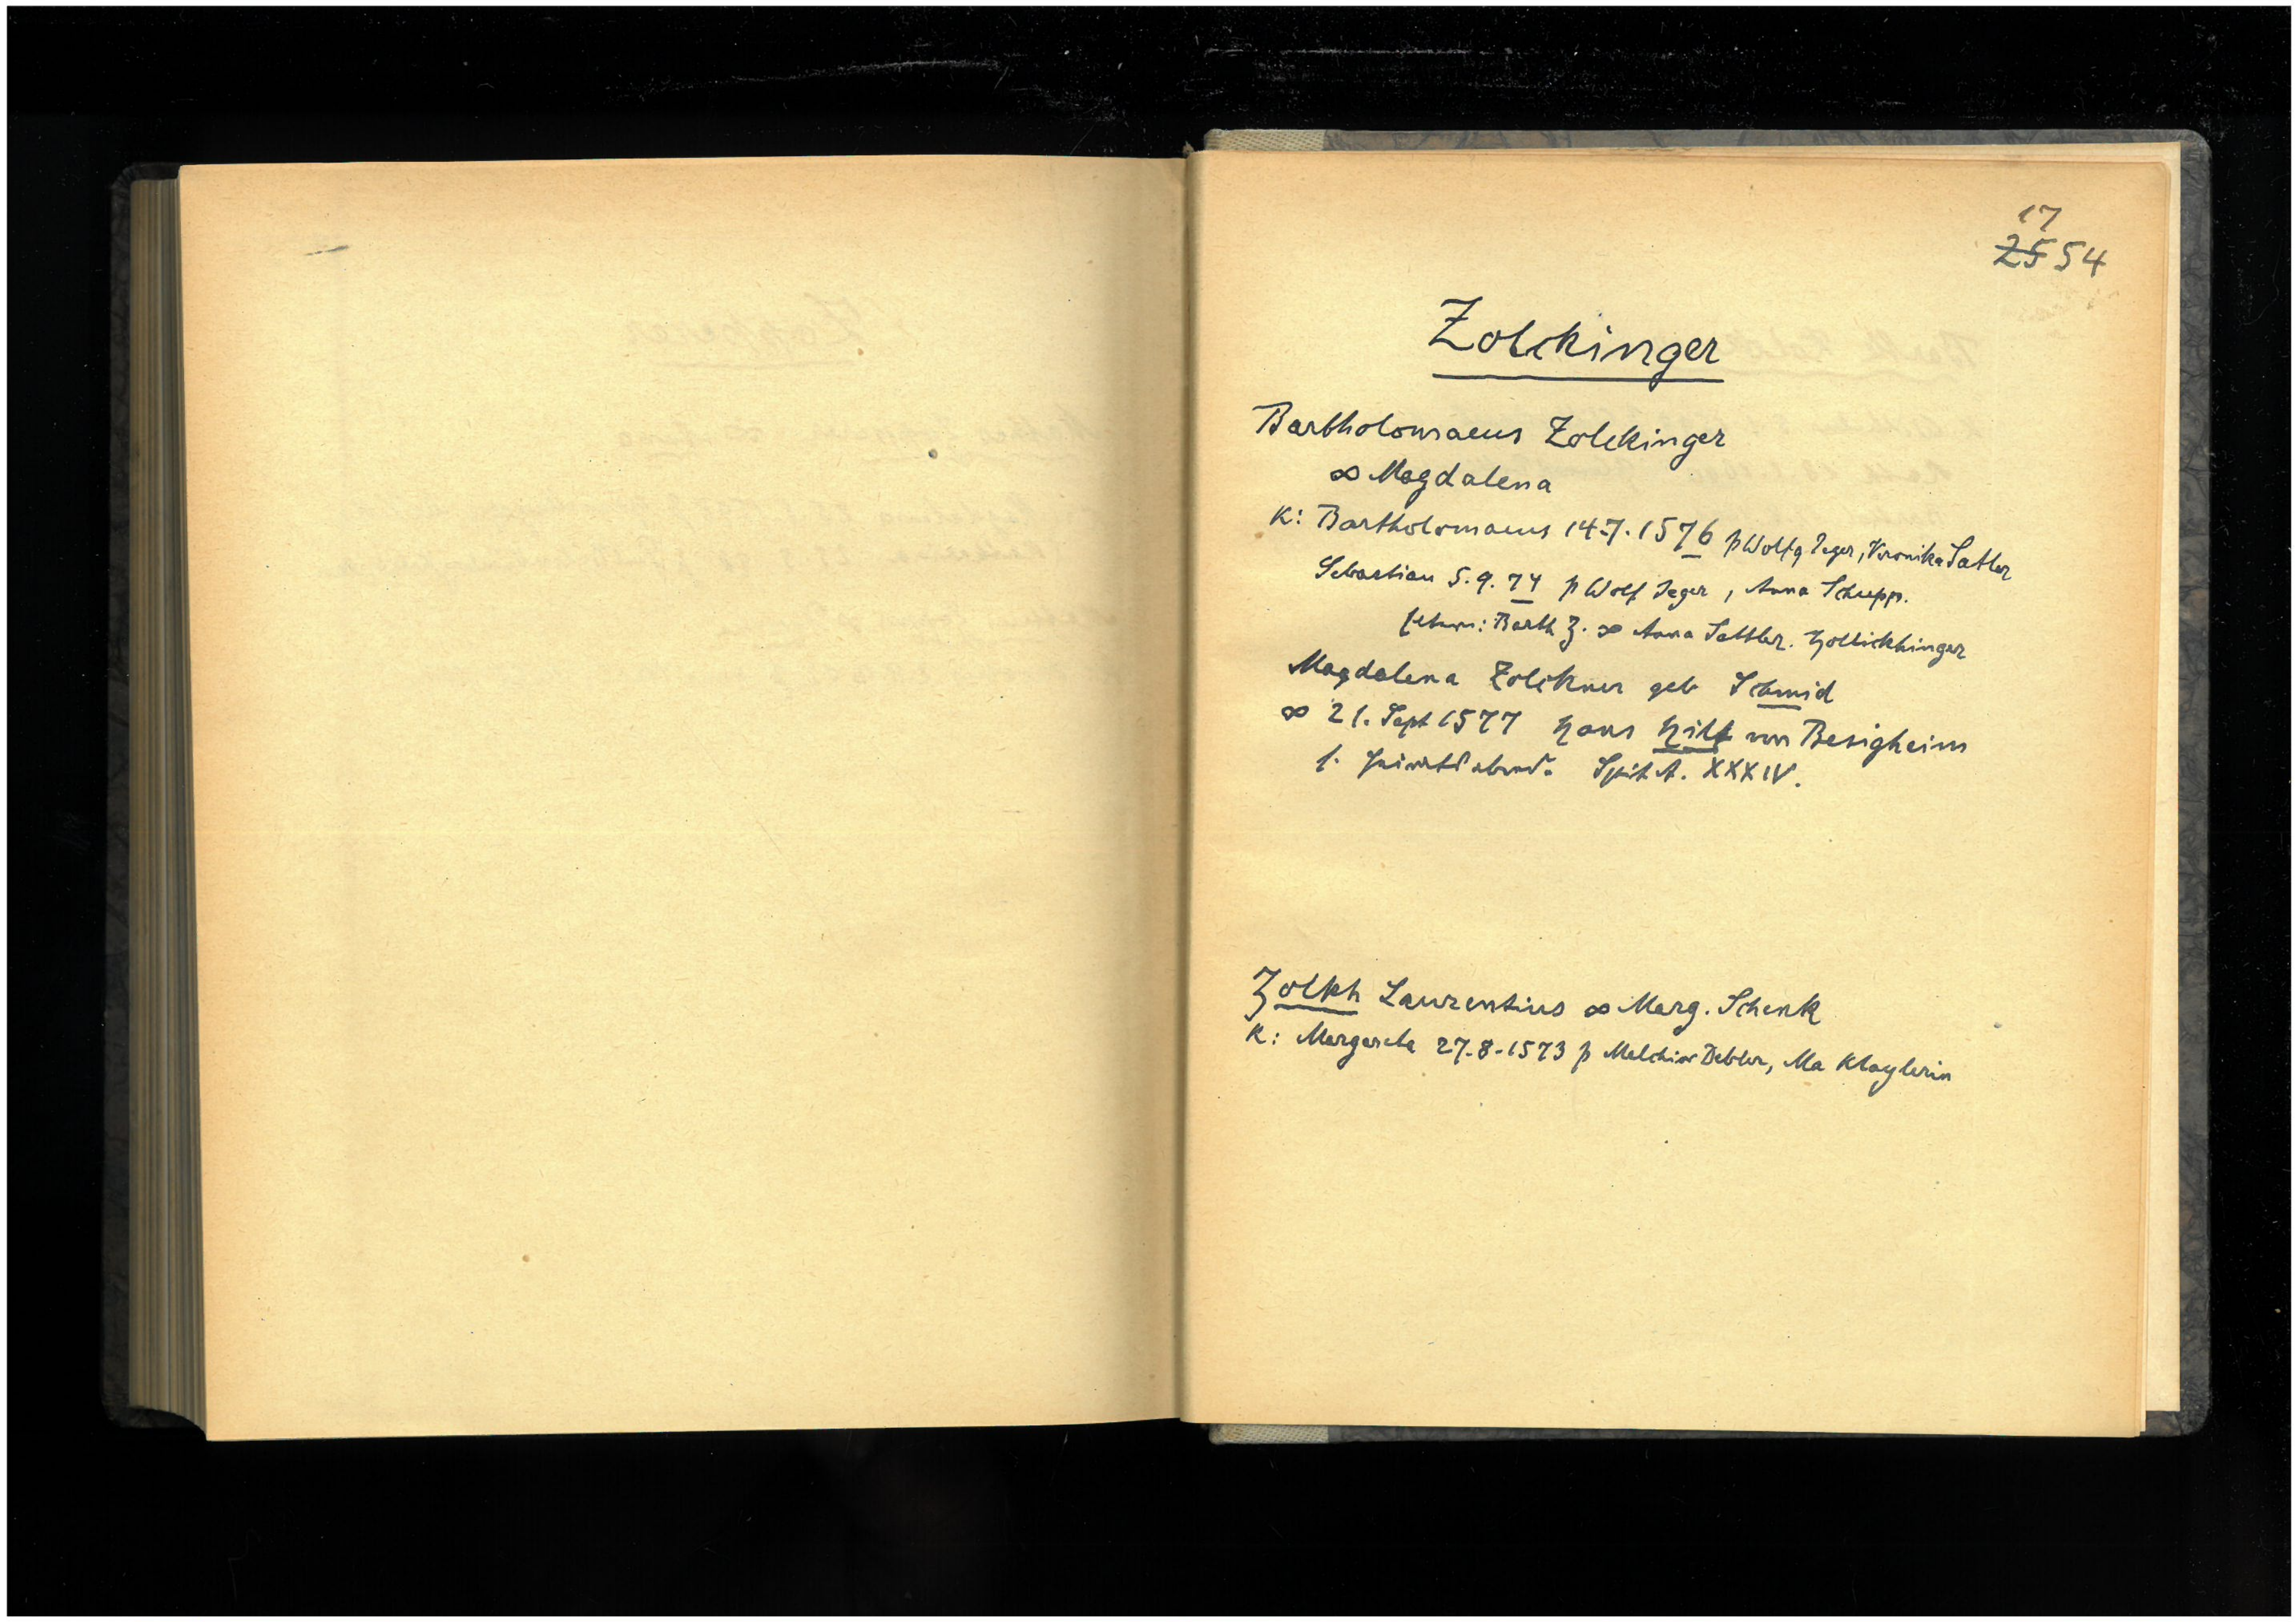 17
25 54
Zolckinger
Bartholomaeus Zolckinger
∞ Magdalena
K: Bartholomaeus 14.7.1576 p Wolfg Jeger, Veronika Satler
Sebastian 5.9.74 p Wolf Jeger, Anna Schepp.
Barth Z. ∞ Anna Sattler. Zollickhinger
Magdalena Zolckner geb Schmid
∞ 21. Sept 1577 Hans Hilt von Besigheim
s. Heiratsabrede Spit A. XXXIV.
Zolkh Laurentius ∞ Marg. Schenk
K: Margareta 27.8.1573 p Melchior Debler, Ma Klaylerin